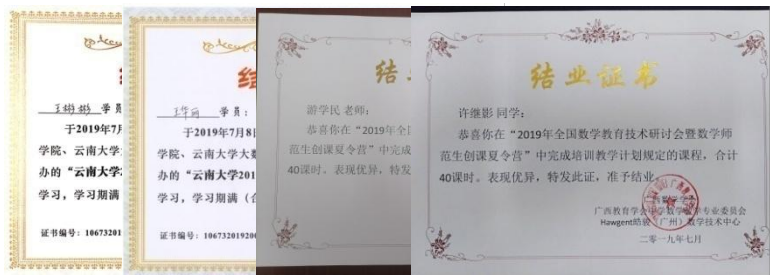 结
王彬彬 学员
于2019年7月
学院、云南大学大
办的“云南大学2
学习，学习期满
证书编号：10673201
结
学员：
于2019年7月8日
学院、云南大学大数
办的“云南大学201
学习，学习期满（合
证书编号：1067320190
结业
游学民 老师：
恭喜你在“2019年全国
范生创课夏令营”中完成
40课时。表现优异，特发
结业证书
许继影 同学：
恭喜你在“2019年全国数学教育技术研讨会暨数学师
范生创课夏令营”中完成培训教学计划规定的课程，合计
40课时。表现优异，特发此证，准予结业。
广西教育学会中学数学教学专业委员会
Hawgent皓骏（广州）数学技术中心
二零一九年七月